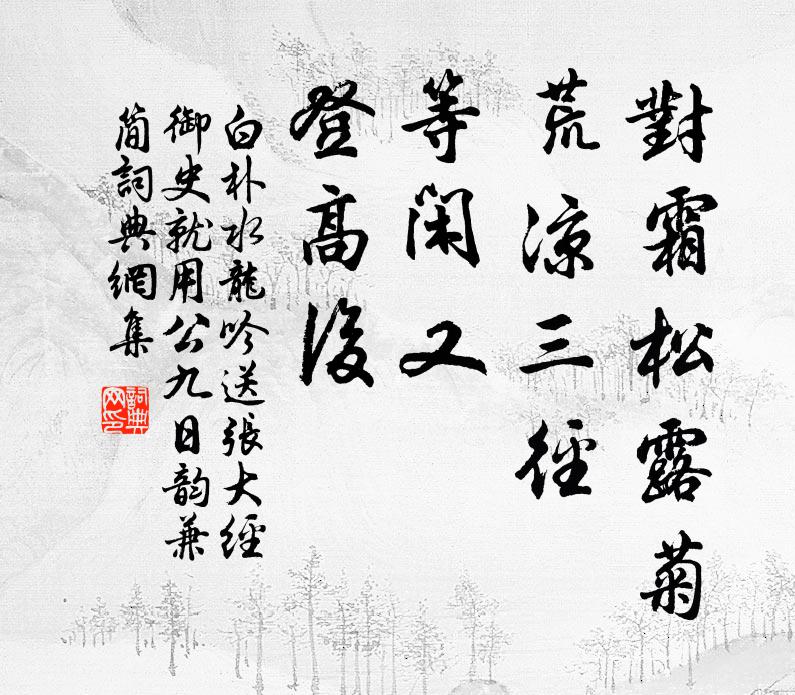 對霜松露菊
荒涼三徑
等閑又
登高後
白朴水龍吟送張大經
御史就用公九日韵兼
簡詞典網集
詞典
网印